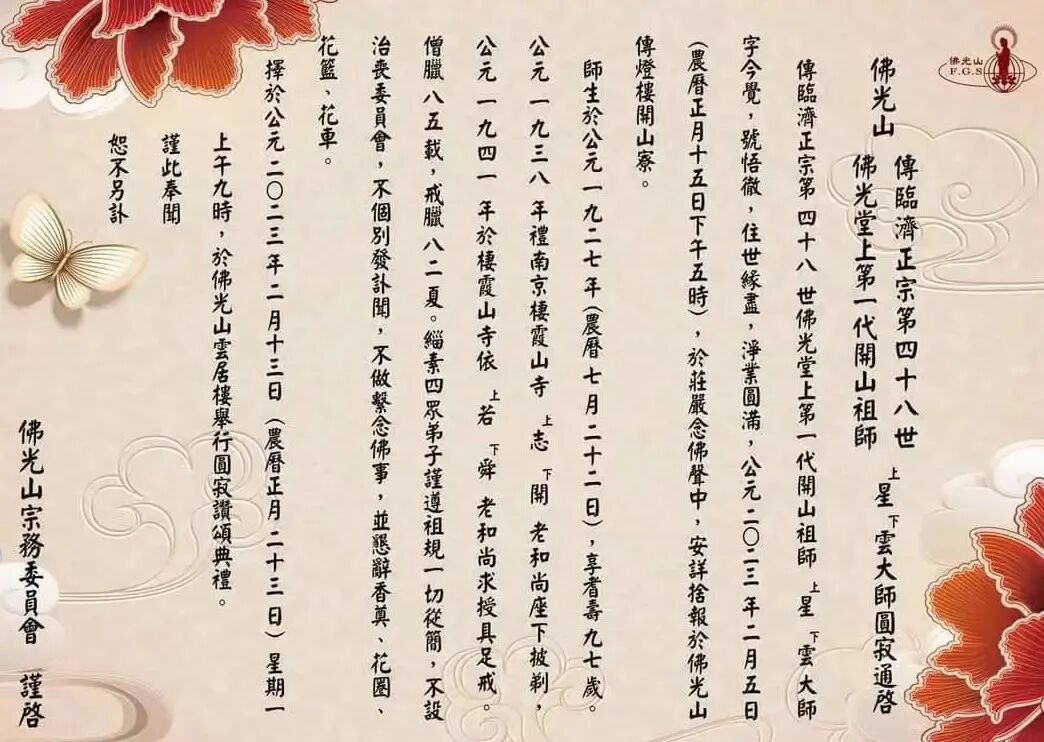 佛光山
F.G.S
佛光山 傳臨濟正宗第四十八世
佛光堂上第一代開山祖師 上星下雲大師圓寂通啓
傳臨濟正宗第四十八世佛光堂上第一代開山祖師 上星下雲大師
字今覺，號悟徹，住世緣盡，淨業圓滿，公元二〇二三年二月五日
(農曆正月十五日下午五時)，於莊嚴念佛聲中，安詳捨報於佛光山
傳燈樓開山寮。
師生於公元一九二七年(農曆七月二十二日)，享耆壽九七歲。
公元一九三八年禮南京棲霞山寺 上志下開 老和尚座下披剃，
公元一九四一年於棲霞山寺依 上若下舜 老和尚求授具足戒。
僧臘八五載，戒臘八二夏。緇素四眾弟子謹遵祖規一切從簡，不設
治喪委員會，不個別發訃聞，不做繫念佛事，並懇辭香奠、花圈、
花籃、花車。
擇於公元二〇二三年二月十三日（農曆正月二十三日）星期一
上午九時，於佛光山雲居樓舉行圓寂讚頌典禮。
謹此奉聞
恕不另訃
佛光山宗務委員會 謹啓